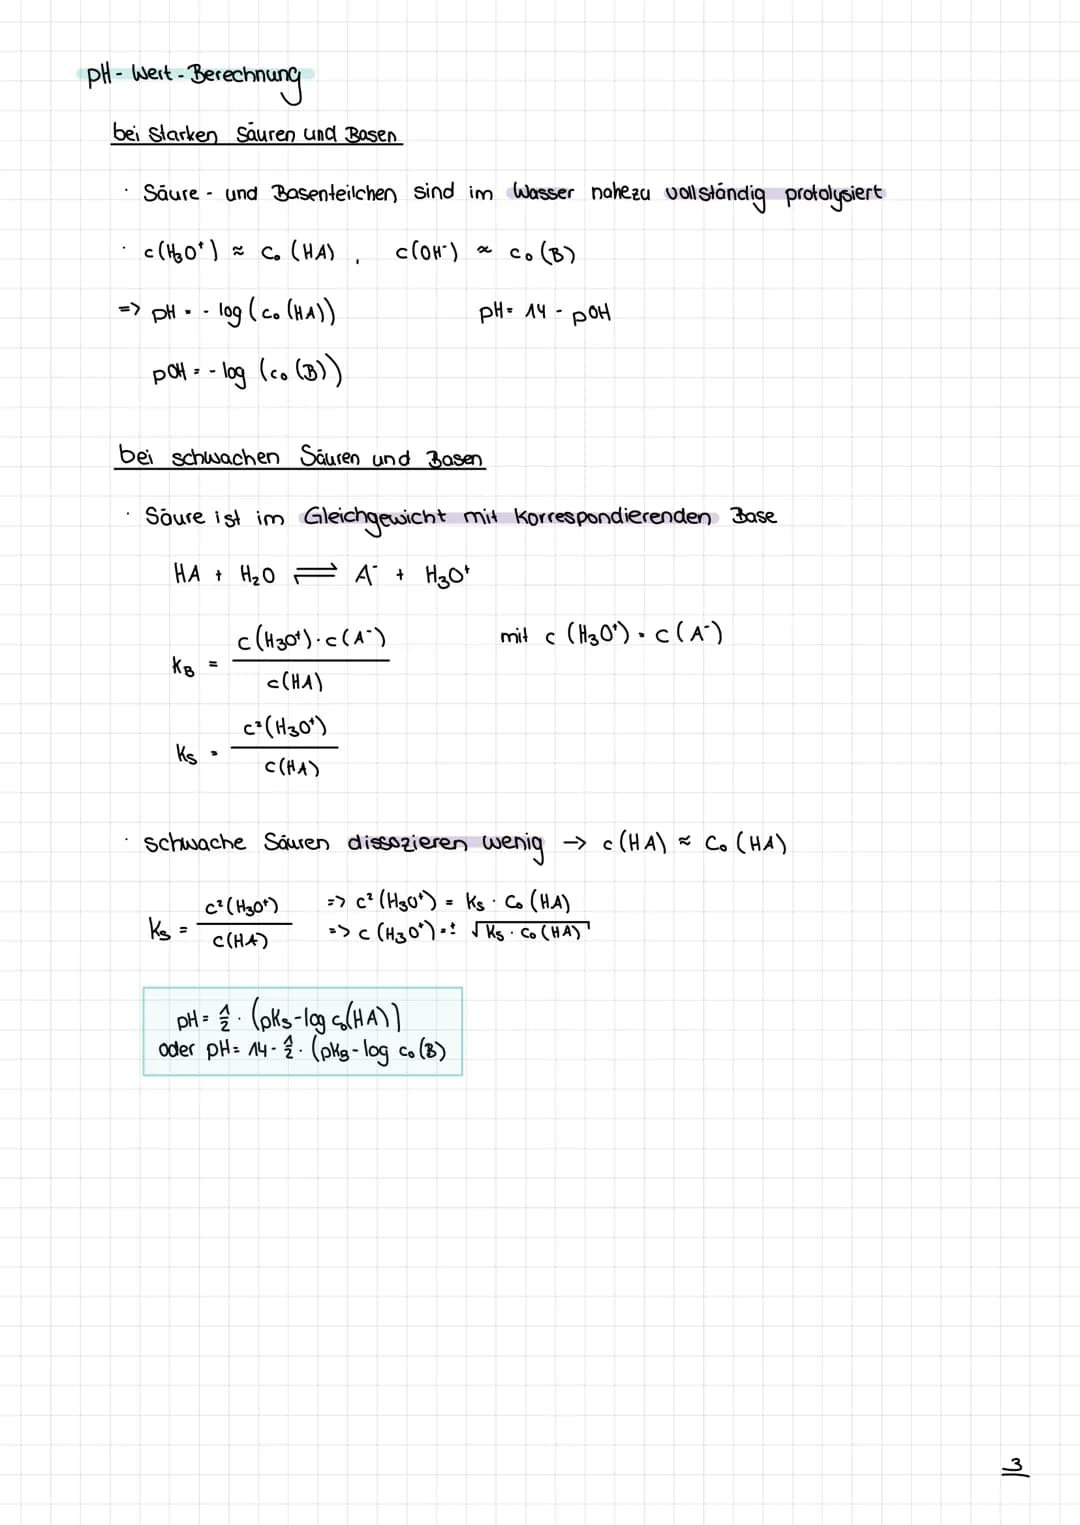 pH-Wert-Berechnung
bei starken Säuren und Basen
· Säure- und Basenteilchen sind im Wasser nahezu vollständig protolysiert
· c(H₃O⁺) ≈ c₀(HA), c(OH⁻) ≈ c₀(B)
=> pH = -log(c₀(HA)) pH = 14 - pOH
pOH = -log(c₀(B))
bei schwachen Säuren und Basen
· Säure ist im Gleichgewicht mit korrespondierenden Base
HA + H₂O ⇌ A⁻ + H₃O⁺
K_B = c(H₃O⁺)·c(A⁻) / c(HA) mit c(H₃O⁺) = c(A⁻)
K_S = c²(H₃O⁺) / c(HA)
· schwache Säuren dissozieren wenig → c(HA) ≈ c₀(HA)
K_S = c²(H₃O⁺) / c(HA) => c²(H₃O⁺) = K_S · c₀(HA)
=> c(H₃O⁺) = ± √K_S · c₀(HA)
pH = 1/2 · (pK_S - log c₀(HA))
oder pH = 14 - 1/2 · (pK_B - log c₀(B)
3